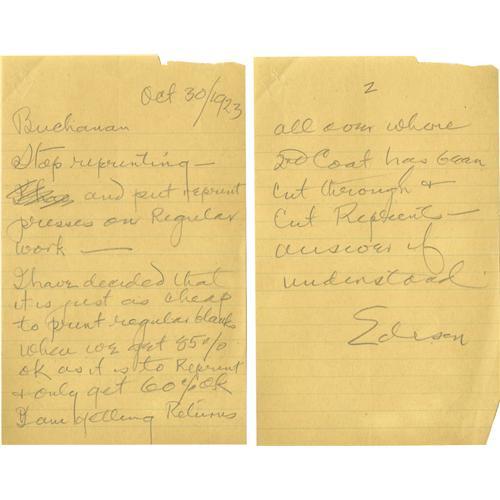 Oct 30/1923
Buchanan
Stop reprinting —
and put reprint
presses on Regular
work —
I have decided that
it is just as cheap
to print regular blanks
when we get 85%
ok as it is to Reprint
+ only get 60% ok
I am getting Returns
2
all over where
2nd Coat has been
cut through +
Cut Reprints —
answer if
understood
Edison